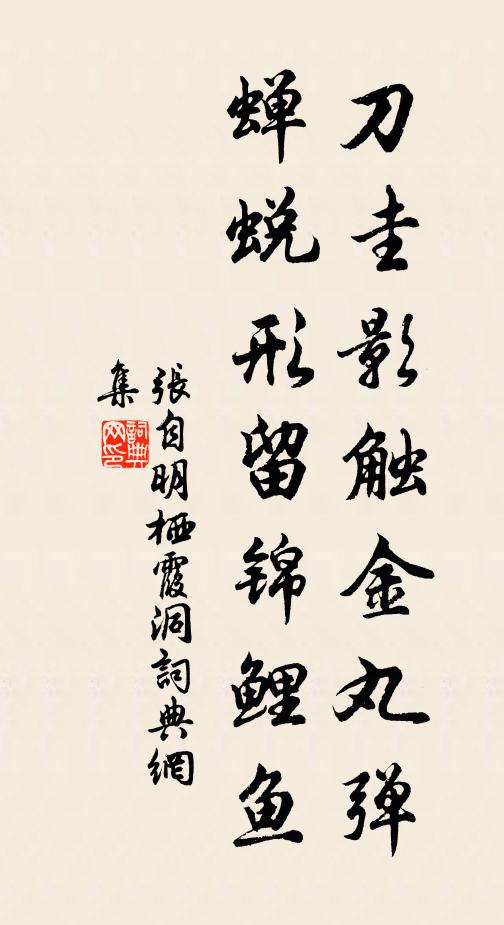 刀圭影触金丸弹
蝉蜕形留锦鲤鱼
張自明栖霞洞詞典網
集
詞典
网印